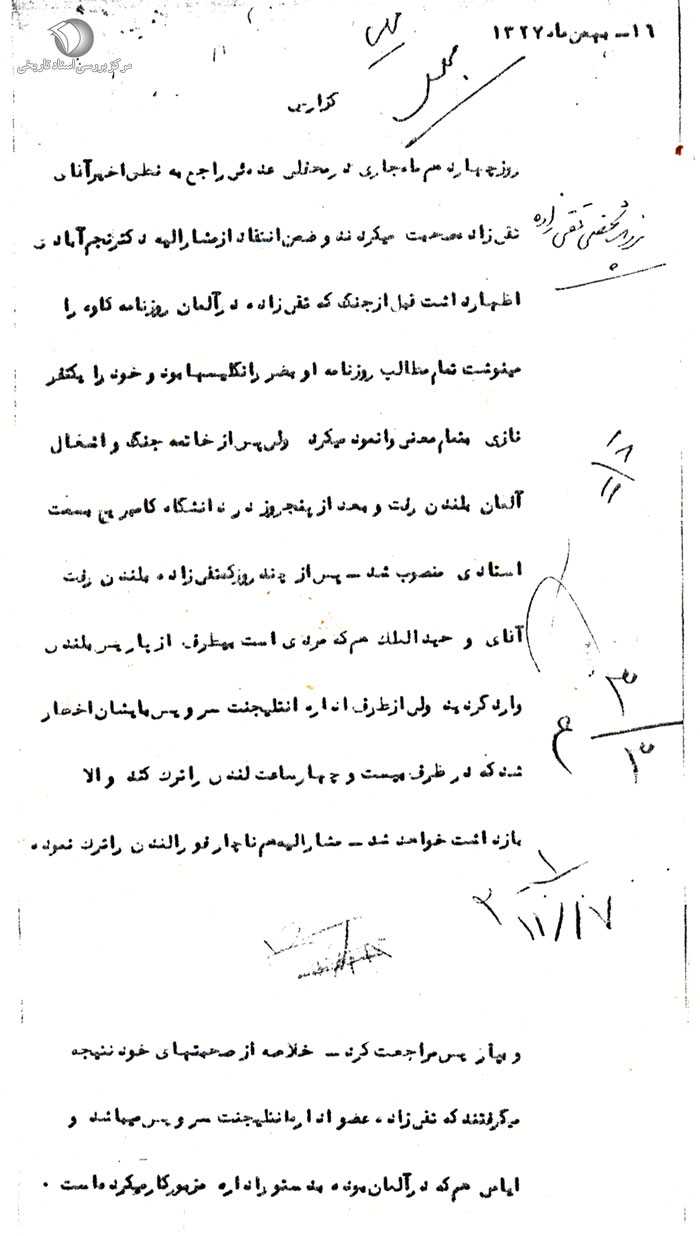 مرکز بررسی اسناد تاریخی
۱۶ـ بهمن ماه ۱۳۲۷
گزارش
روز چهاردهم ماه جاری در محفلی عده‌ئی راجع به نطق اخیر آقای
تقی‌زاده صحبت میکردند و ضمن انتقاد از مشارالیه دکتر نجم‌آبادی
پرونده شخصی تقی زاده
اظهار داشت قبل از جنگ که تقی‌زاده در آلمان روزنامه کاوه را
مینوشت تمام مطالب روزنامه او بضرر انگلیسها بود و خود را یکنفر
نازی بتمام معنی وانمود میکرد ولی پس از خاتمه جنگ و اشغال
۱۸
۱۱
آلمان بلندن رفت و بعد از پنجروز در دانشگاه کامبریج بسمت
استادی منصوب شد ـ پس از چند روز که تقی‌زاده بلندن رفت
آقای وحیدالملک هم که مردی است بیطرف از پاریس بلندن
وارد گردید ولی از طرف اداره انتلیجنت سرویس بایشان اخطار
شد که در ظرف بیست و چهار ساعت لندن را ترک کند و الا
بازداشت خواهد شد ـ مشارالیه هم ناچار فورا لندن را ترک نموده
۱۱/۱۷
و بپاریس مراجعت کرد ـ خلاصه از صحبتهای خود نتیجه
میگرفتند که تقی‌زاده عضو اداره انتلیجنت سرویس میباشد و
ایامی هم که در آلمان بوده بدستور اداره مزبور کار میکرده‌است .